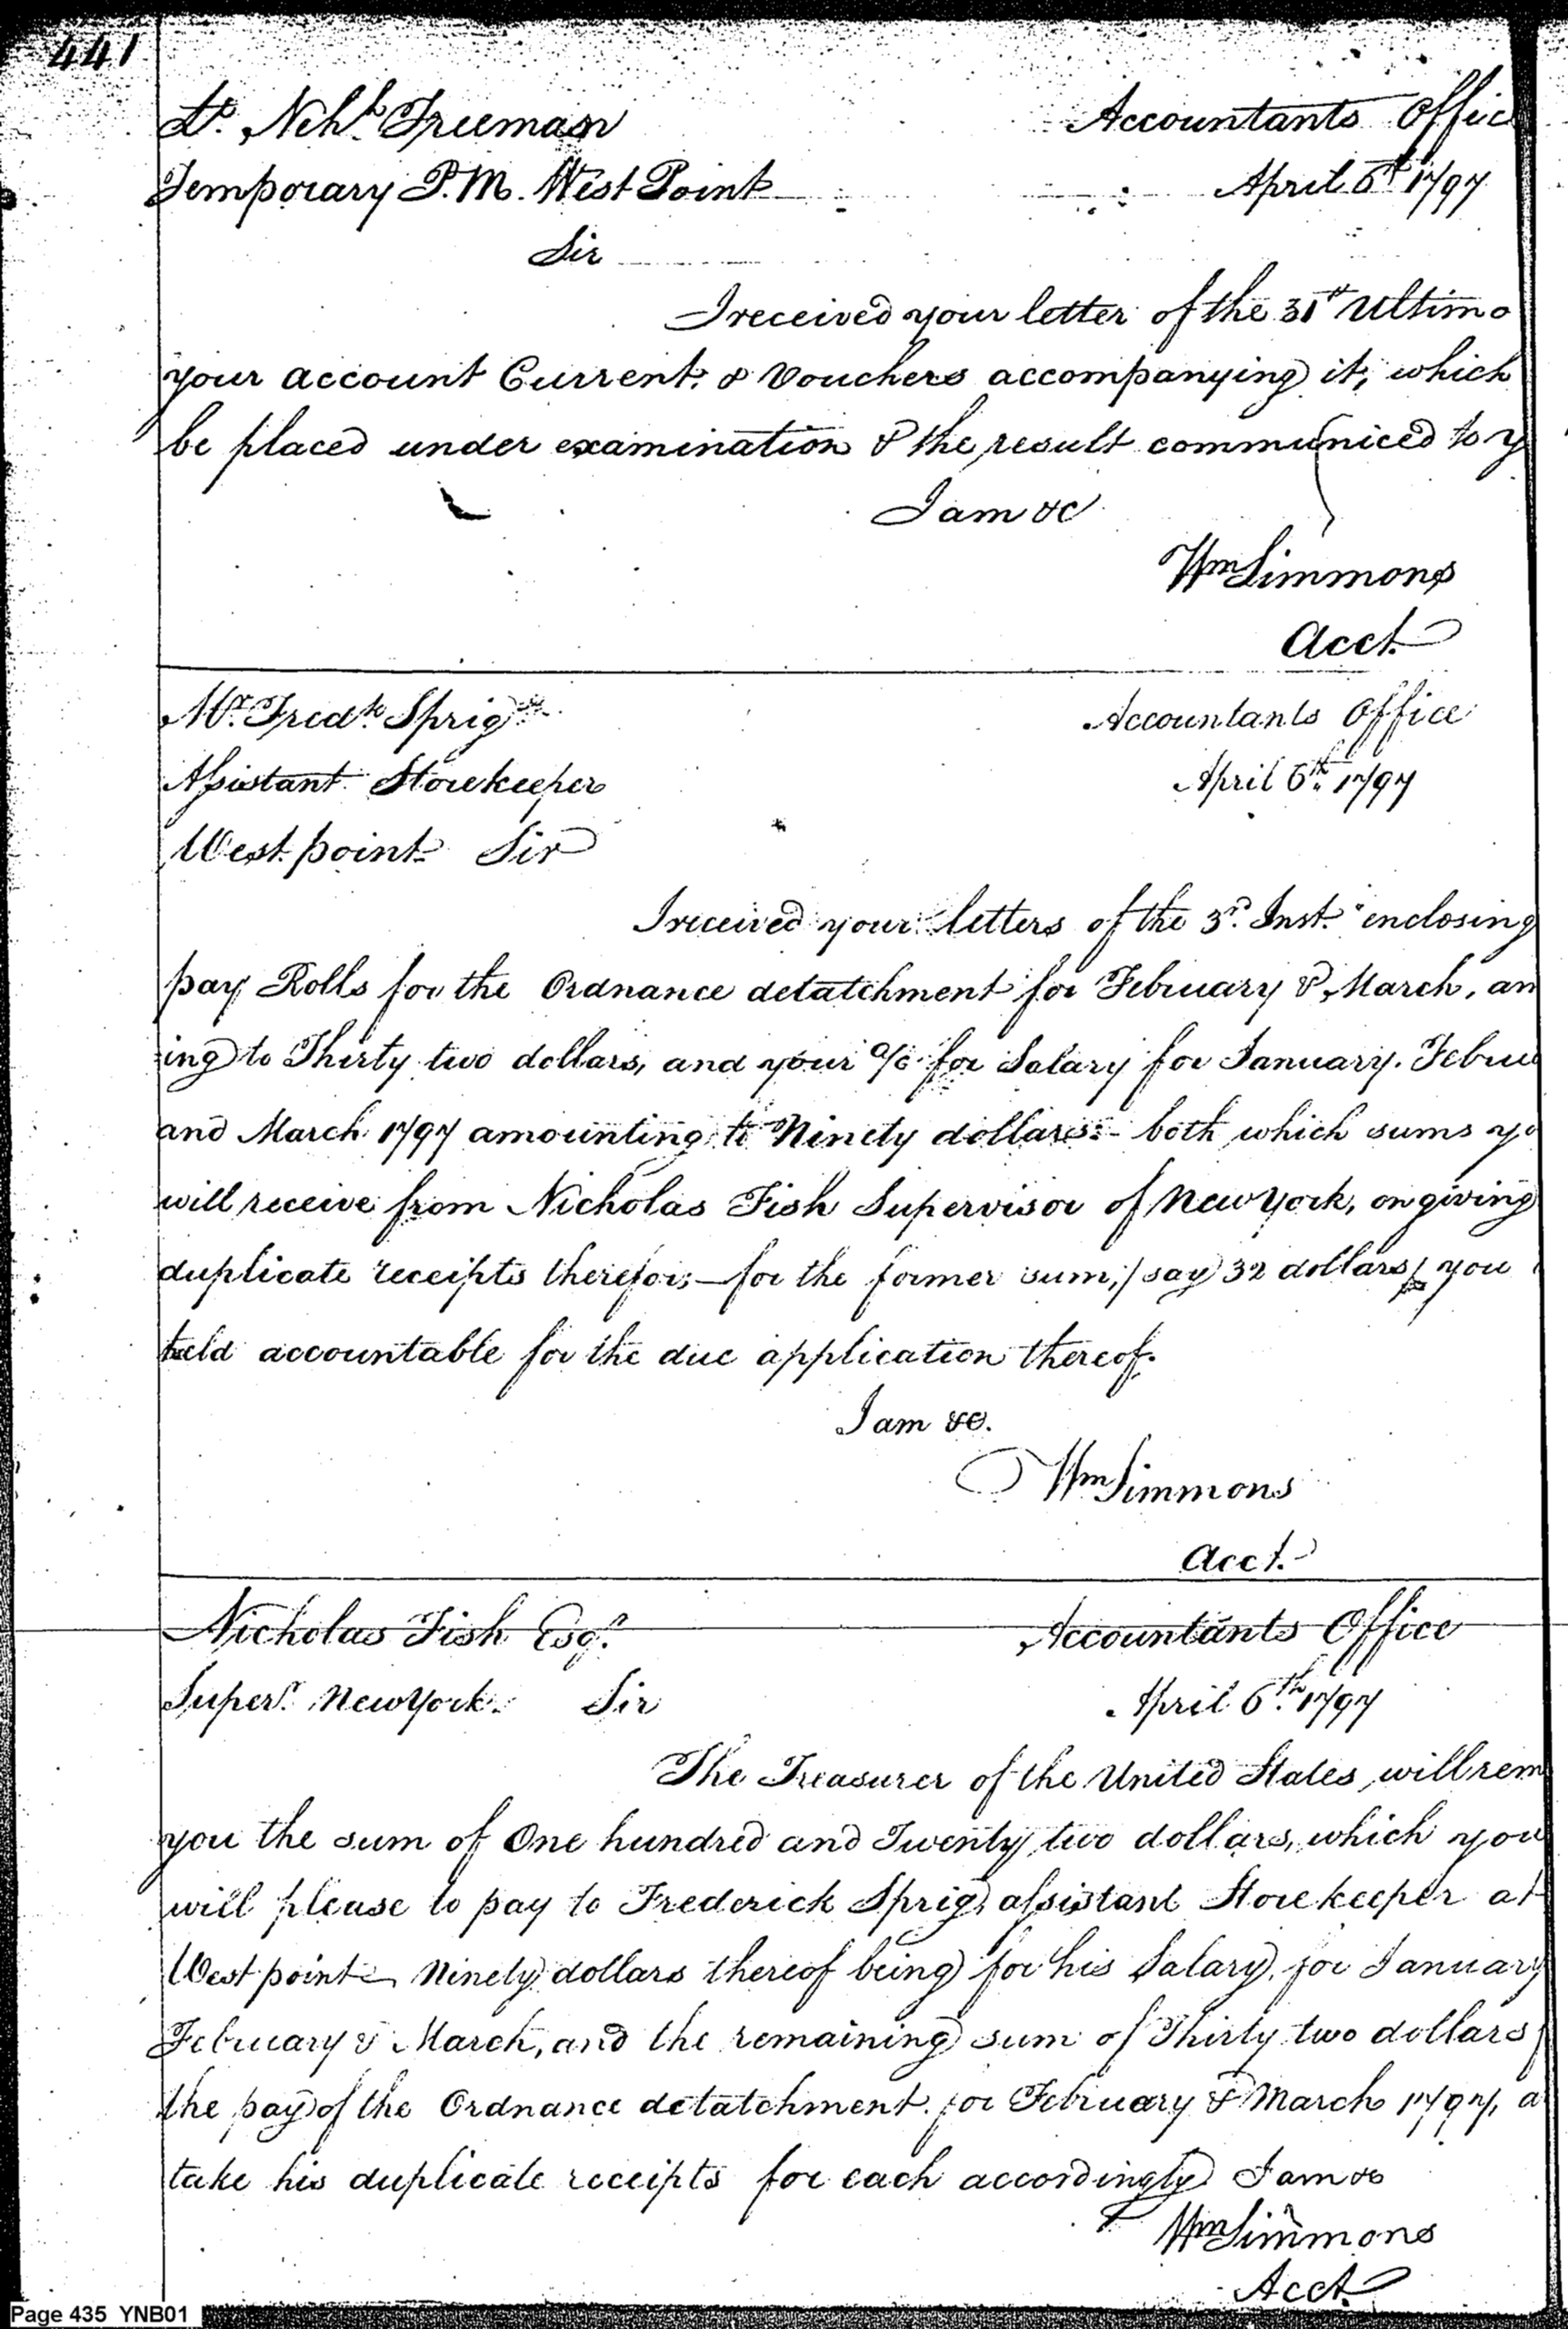 441
Lt. Nehh. Freeman Accountants Offic
Temporary P.M. West Point April 6th 1797
Sir
I received your letter of the 31st Ultimo
your account Current, & Vouchers accompanying it, which
be placed under examination & the result communiced to y
I am &c
Wm Simmons
Acct.
Mr. Fredk. Sprig Accountants Office
Assistant Storekeeper April 6th. 1797
West point Sir
I received your letters of the 3rd. Inst. enclosing
pay Rolls for the Ordnance detatchment for February & March, am
ing to Thirty two dollars, and your a/c for Salary for January. Februa
and March 1797 amounting to Ninety dollars:- both which sums yo
will receive from Nicholas Fish Supervisor of New York, on giving
duplicate receipts therefor;— for the former sum, / say 32 dollars / you
held accountable for the due application thereof.
I am &c.
Wm Simmons
Acct.
Nicholas Fish Esqr. Accountants Office
Superr. New York. Sir April 6th. 1797
The Treasurer of the United States, will rem
you the sum of One hundred and Twenty two dollars, which you
will please to pay to Frederick Sprig, assistant Store keeper at
West point Ninety dollars thereof being for his Salary, for January
February & March, and the remaining sum of Thirty two dollars f
the pay of the Ordnance detatchment for February & March 1797, a
take his duplicate receipts for each accordingly I am &c
Wm Simmons
Acct.
Page 435 YNB01